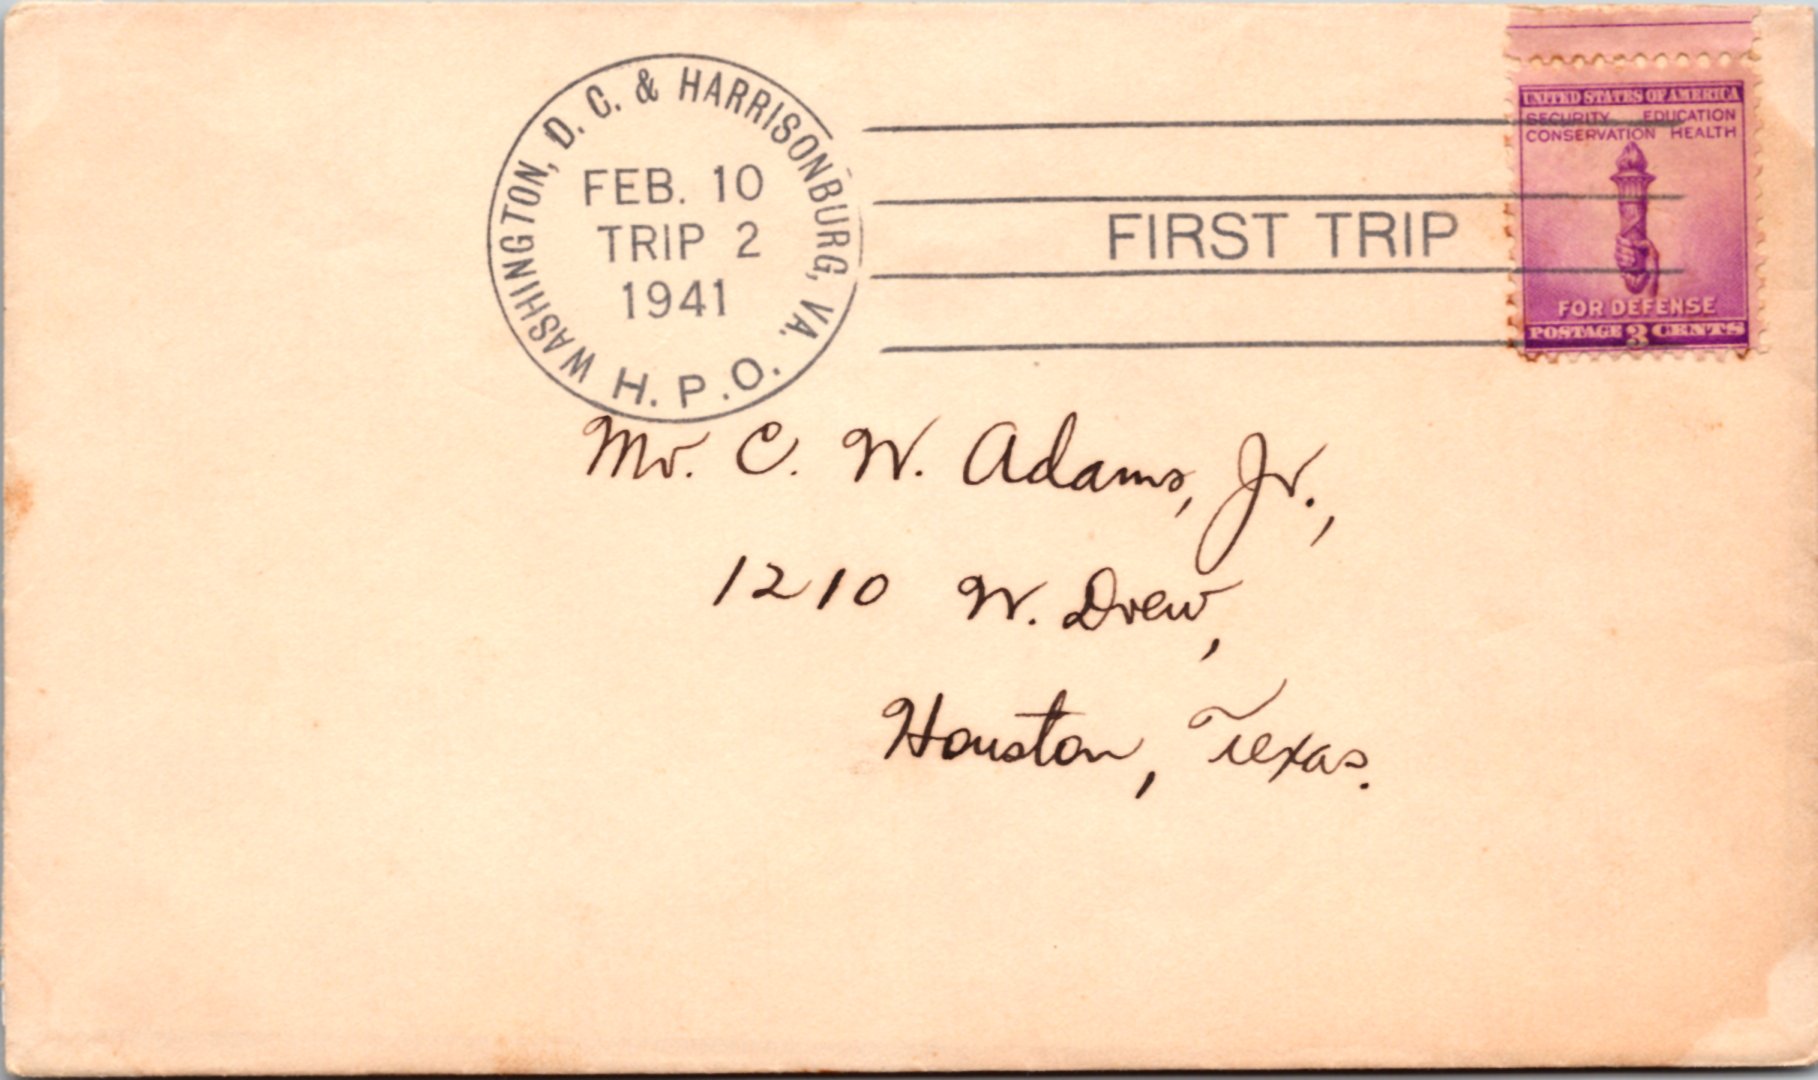 WASHINGTON, D. C. & HARRISONBURG, VA.
FEB. 10
TRIP 2
1941
H. P. O.
FIRST TRIP
UNITED STATES OF AMERICA
SECURITY EDUCATION
CONSERVATION HEALTH
FOR DEFENSE
POSTAGE 3 CENTS
Mr. C. W. Adams, Jr.,
1210 W. Drew,
Houston, Texas.